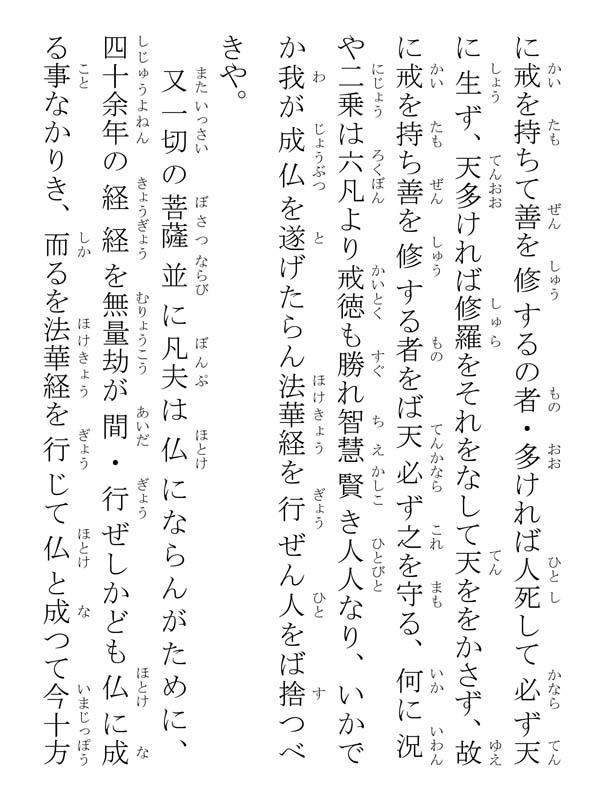 に戒を持ちて善を修するの者・多ければ人死して必ず天
に生ず、天多ければ修羅をそれをなして天ををかさず、故
に戒を持ち善を修する者をば天必ず之を守る、何に況
や二乗は六凡より戒徳も勝れ智慧賢き人人なり、いかで
か我が成仏を遂げたらん法華経を行ぜん人をば捨つべ
きや。
又一切の菩薩並に凡夫は仏にならんがために、
四十余年の経経を無量劫が間・行ぜしかども仏に成
る事なかりき、而るを法華経を行じて仏と成つて今十方